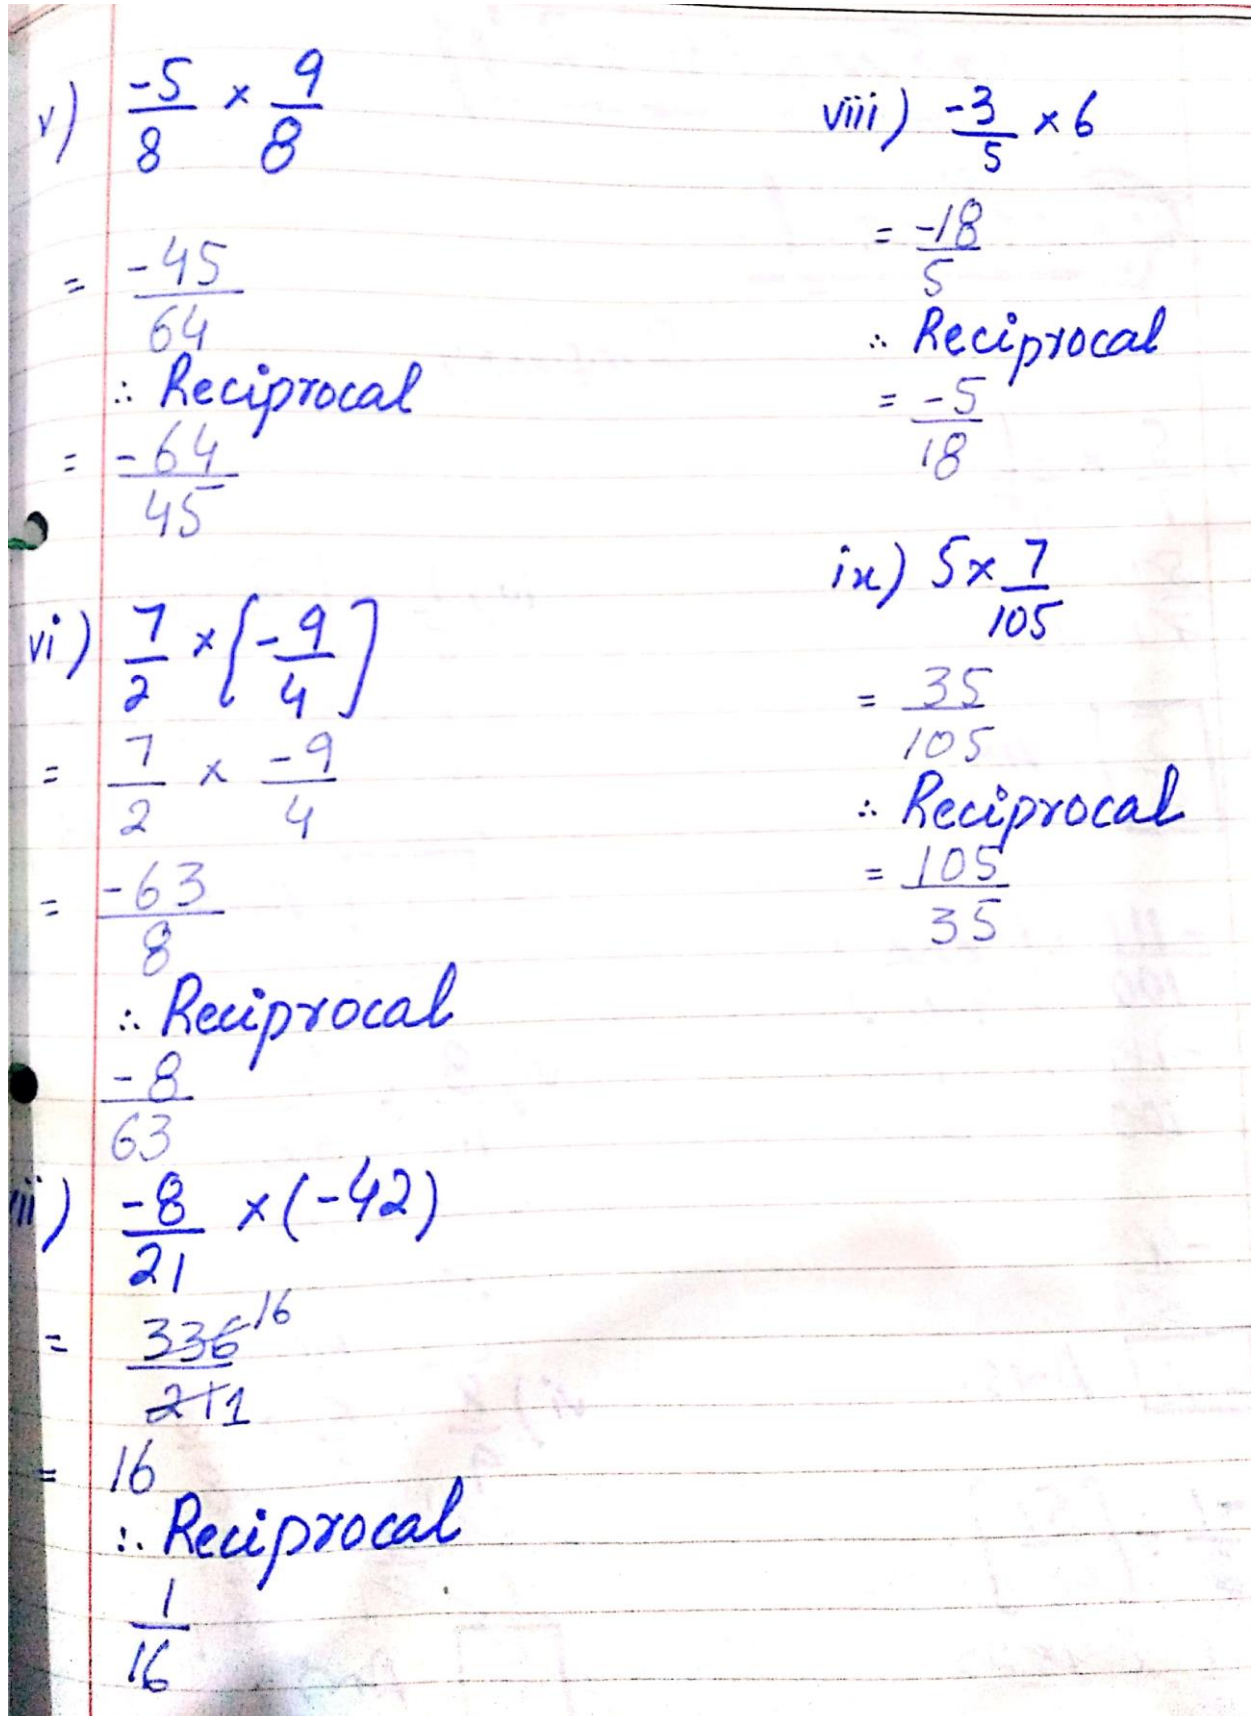 v) -5/8 × 9/8
= -45/64
∴ Reciprocal
= -64/45
vi) 7/2 × [-9/4]
= 7/2 × -9/4
= -63/8
∴ Reciprocal
-8/63
ii) -8/21 × (-42)
= 336 16/21 1
= 16
∴ Reciprocal
1/16
viii) -3/5 × 6
= -18/5
∴ Reciprocal
= -5/18
ix) 5 × 7/105
= 35/105
∴ Reciprocal
= 105/35